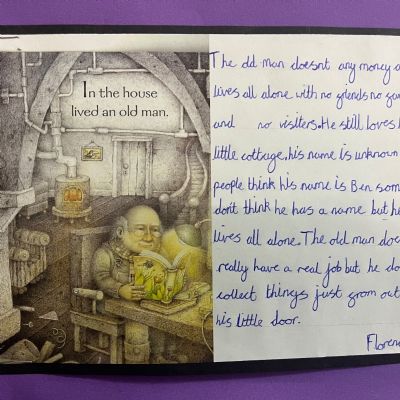 In the house
lived an old man.
The old man doesnt any money a
lives all alone with no friends no
and no visiters. He still loves h
little cottage, his name is unknown
people think his name is Ben som
dont think he has a name but he
lives all alone. The old man doe
really have a real job but he do
collect things just from out
his little door.
Floren